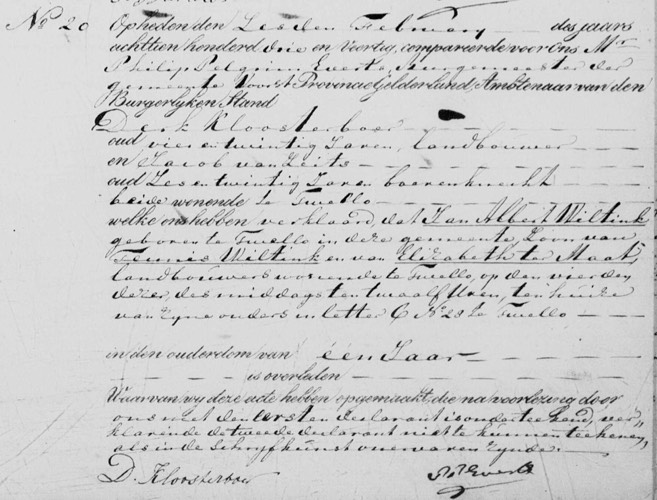 No 20 Op heden den Zesden February des jaars
achttien honderd drie en Veertig, compareerde voor Ons Mr
Philip Pelgrim Everts, Burgemeester der
gemeente Voorst Provincie Gelderland, Ambtenaar van den
Burgerlyken Stand
Derk Kloosterboer
oud vier en twintig Jaren, landbouwer
en Jacob van Zeits
oud Zes en twintig Jaren boerenknecht
beide wonende te Twello
welke ons hebben verklaard, dat Jan Albert Wiltink
geboren te Twello in deze gemeente, Zoon van
Teunis Wiltink en van Elizabeth ter Maat,
landbouwers wonende te Twello, op den vierden
dezer, des middags ten twaalf Uren, ten huize
van Zyne ouders in letter C No 28 te Twello
in den ouderdom van één Jaar
is overleden
Waarvan wy deze acte hebben opgemaakt, die na voorlezing door
ons met den eersten declarant is onderteekend, ver„
klarende de tweede declarant niet te kunnen teekenen,
als in de Schryfkunst onervaren Zynde.
D. Kloosterboer PP Everts